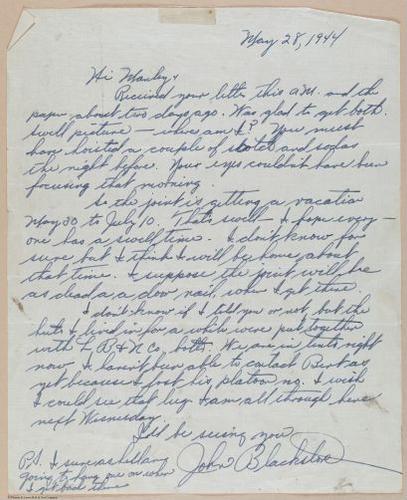 May 28, 1944
Hi Manley,
Received your letter this a.m. and the
paper about two days ago. Was glad to get both.
Swell picture – where am I? You must
have hoisted a couple of scotch and sodas
the night before. Your eyes couldn't have been
focusing that morning.
So the joint is getting a vacation
May 30 to July 10. That's swell – I hope every-
one has a swell time. I don't know for
sure but I think I will be home about
that time. I suppose the joint will be
as dead as a door nail, when I get there.
I don't know if I told you or not, but the
huts I lived in for a while were put together
with L, B & N Co. bolts. We are in tents right
now. I haven't been able to contact Bert as
yet because I lost his platoon no. I wish
I could see that lug. I am all through here
next Wednesday.
I'll be seeing you
John
P.S. I sure as hell am
going to hang one on when
I get back there